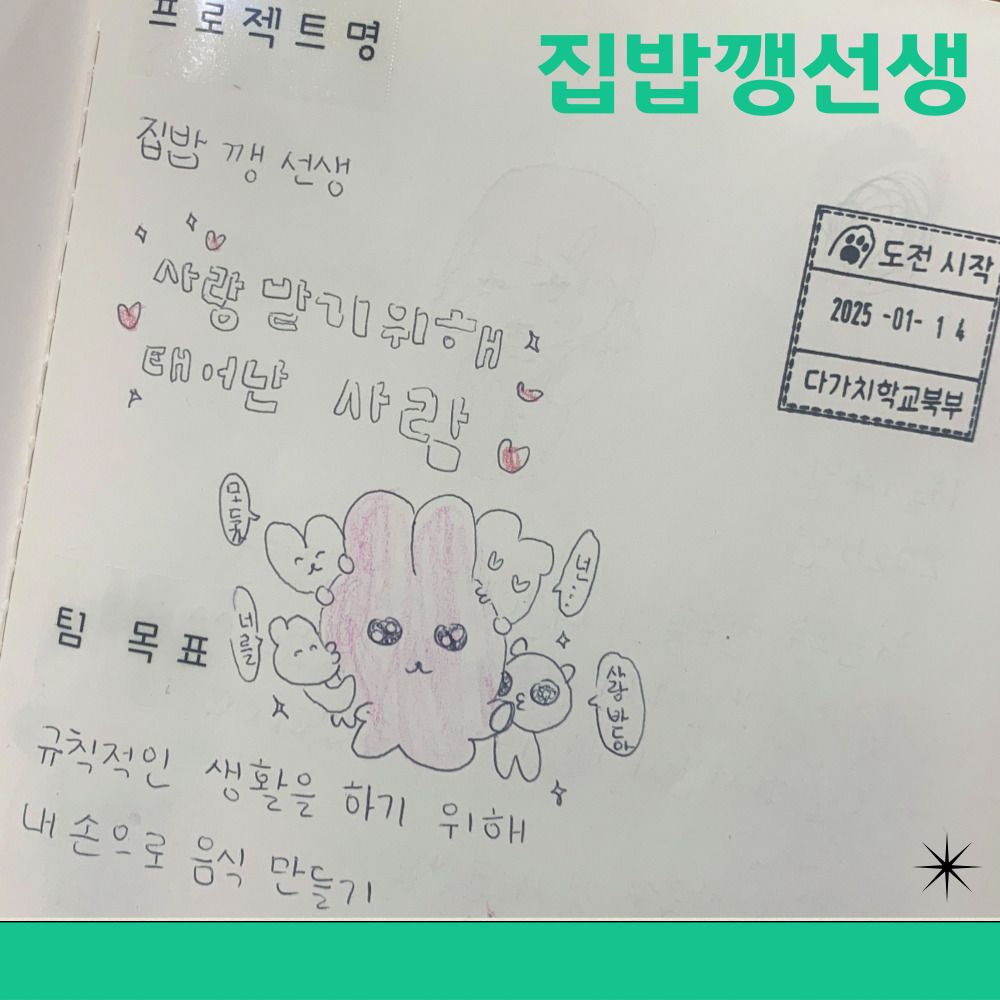 집밥깽선생
프로젝트명
집밥 깽 선생
사랑 받기 위해
태어난 사람
도전 시작
2025 -01- 1 4
다가치학교북부
모두가
너를
넌...
사랑 받는다
팀 목표
규칙적인 생활을 하기 위해
내 손으로 음식 만들기